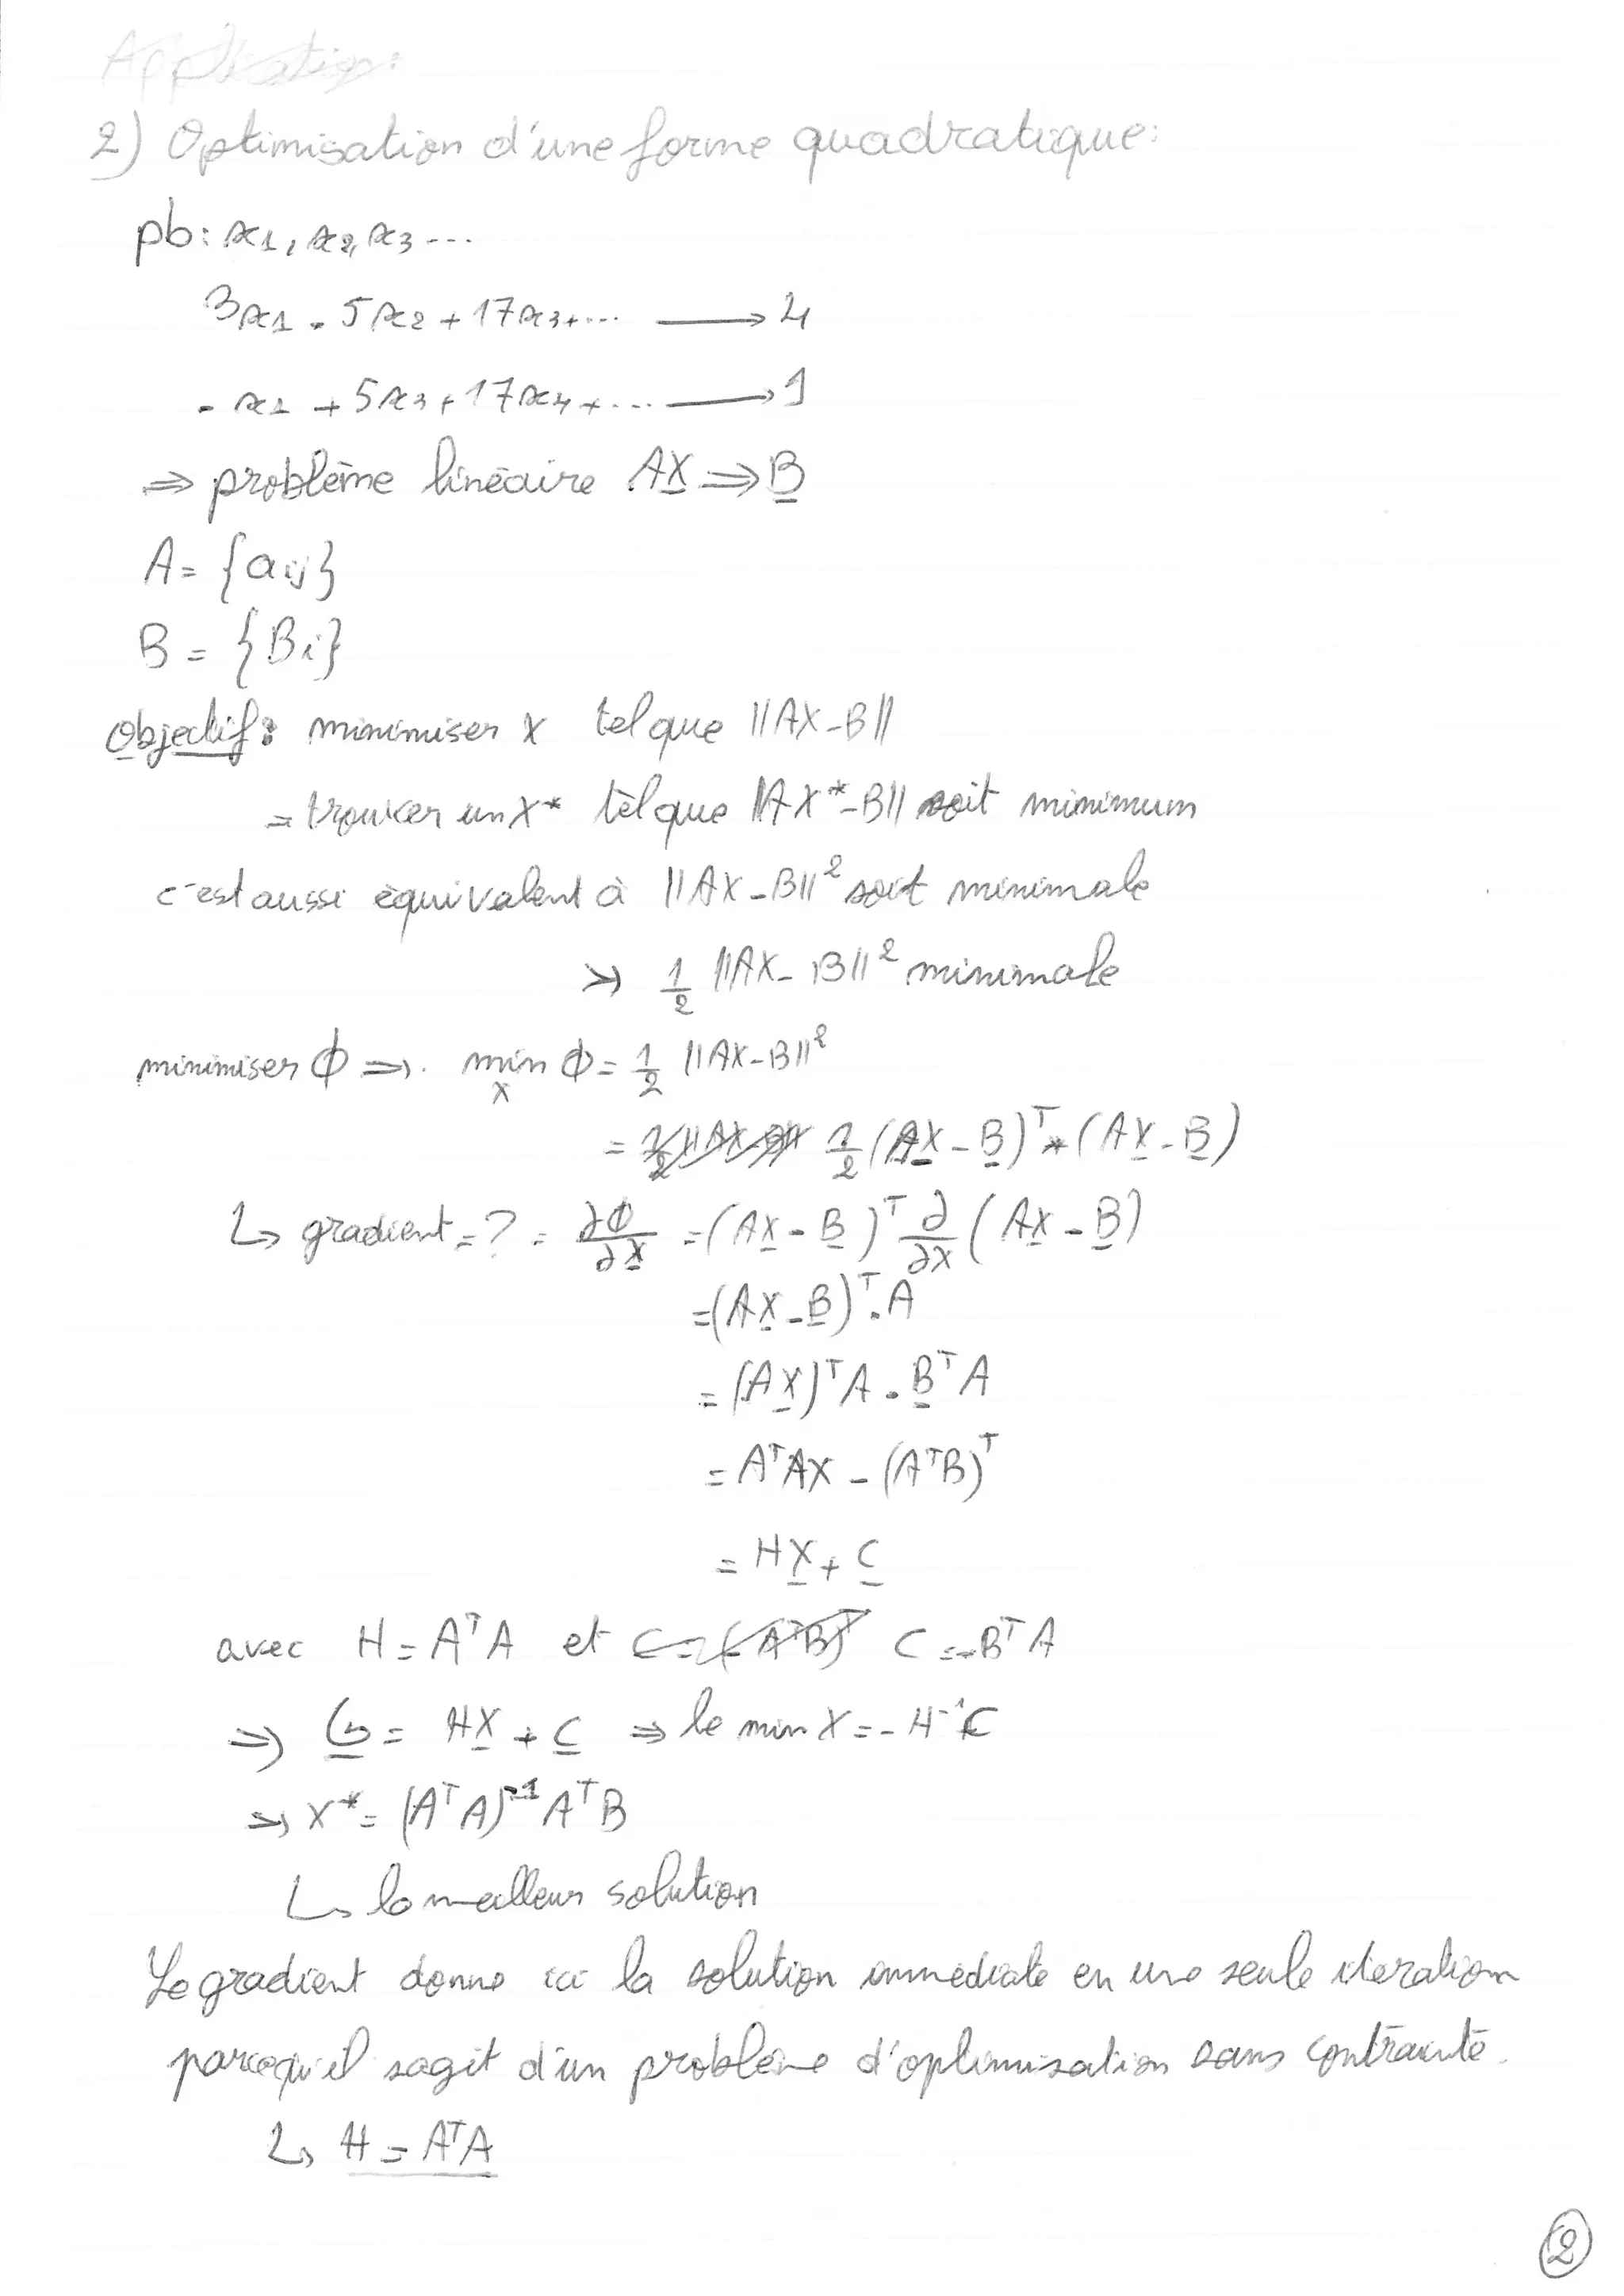 Application:
2) Optimisation d'une forme quadratique:
pb: x1, x2, x3 ...
3x1 - 5x2 + 17x3 + ... → 4
- x1 + 5x3 + 17x4 + ... → 1
⇒ problème linéaire AX ⇒ B
A = {aij}
B = {Bi}
Objectif: minimiser X tel que ||AX - B||
= trouver un X* tel que ||AX* - B|| soit minimum
c'est aussi équivalent à ||AX - B||² soit minimale
⇒ 1/2 ||AX - B||² minimale
minimiser ϕ ⇒ min ϕ = 1/2 ||AX - B||²
X
= 1/2 ||AX - B|| 1/2 (AX - B)ᵀ * (AX - B)
↳ gradient = ? = ∂ϕ/∂X = (AX - B)ᵀ ∂/∂X (AX - B)
= (AX - B)ᵀ . A
= (AX)ᵀ A - Bᵀ A
= AᵀAX - (AᵀB)ᵀ
= HX + C
avec H = AᵀA et C = -(AᵀB)ᵀ C = -BᵀA
⇒ G = HX + C ⇒ le min X = - H⁻¹C
⇒ X* = (AᵀA)⁻¹ AᵀB
↳ la meilleur solution
Le gradient donne ici la solution immédiate en une seule itération
parcequ'il sagit d'un problème d'optimisation sans contrainte.
↳ H = AᵀA
2